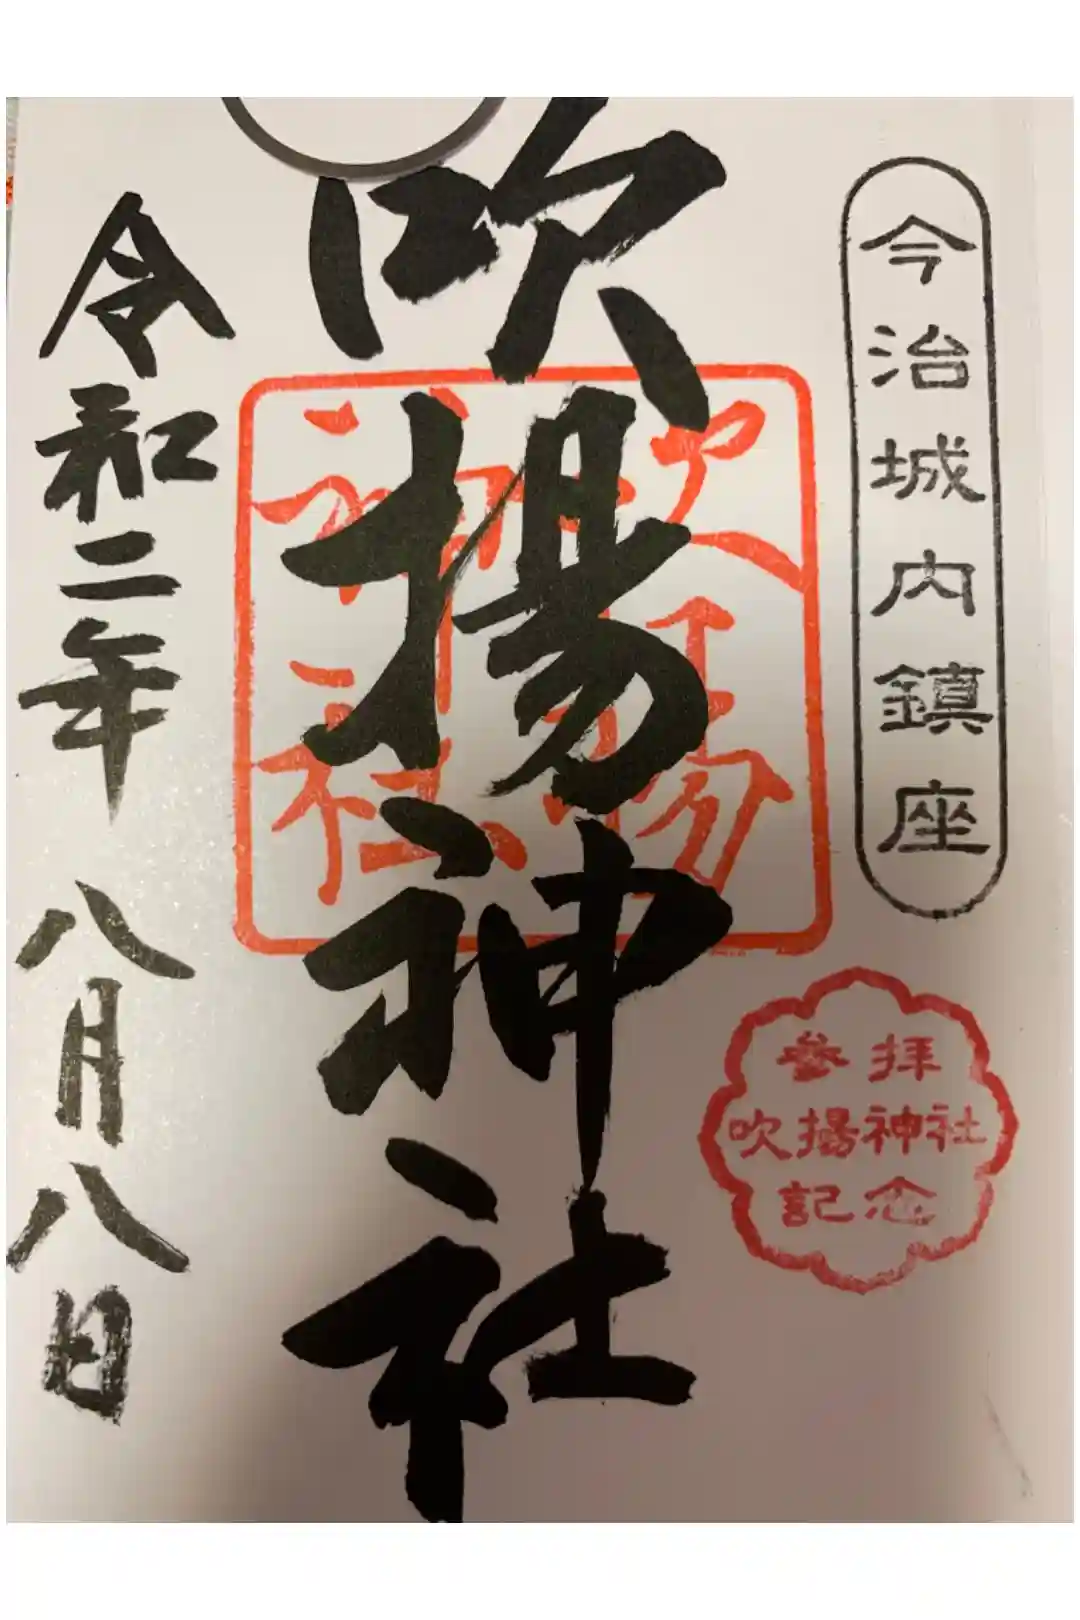 今治城内鎮座
参拝
吹揚神社
記念
吹揚神社
吹揚
神社
令和二年 八月八日